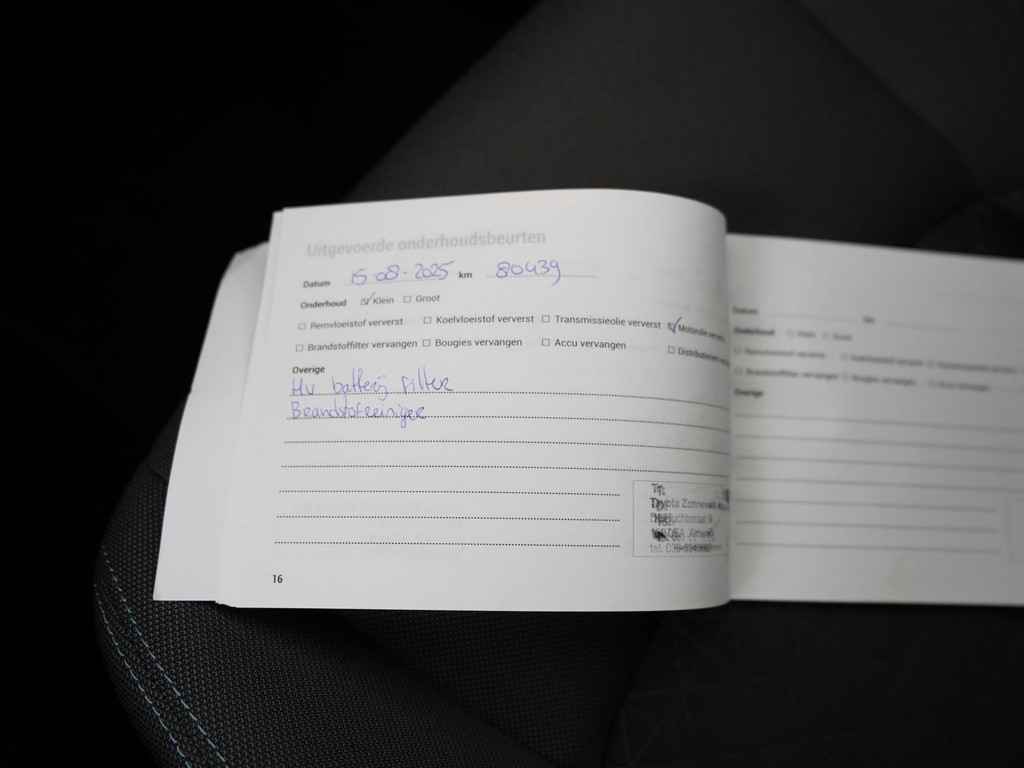 Uitgevoerde onderhoudsbeurten
Datum 15-08-2025 km 80439
Onderhoud Klein Groot
Remvloeistof ververst Koelvloeistof ververst Transmissieolie ververst Motorolie
Brandstoffilter vervangen Bougies vervangen Accu vervangen
Overige
HV batterij filter
Brandstofreiniger
Toyota
tel.
16
Datum km
Onderhoud Klein Groot
Remvloeistof ververst Koelvloeistof ververst
Brandstoffilter vervangen Bougies vervangen Accu vervangen
Overige